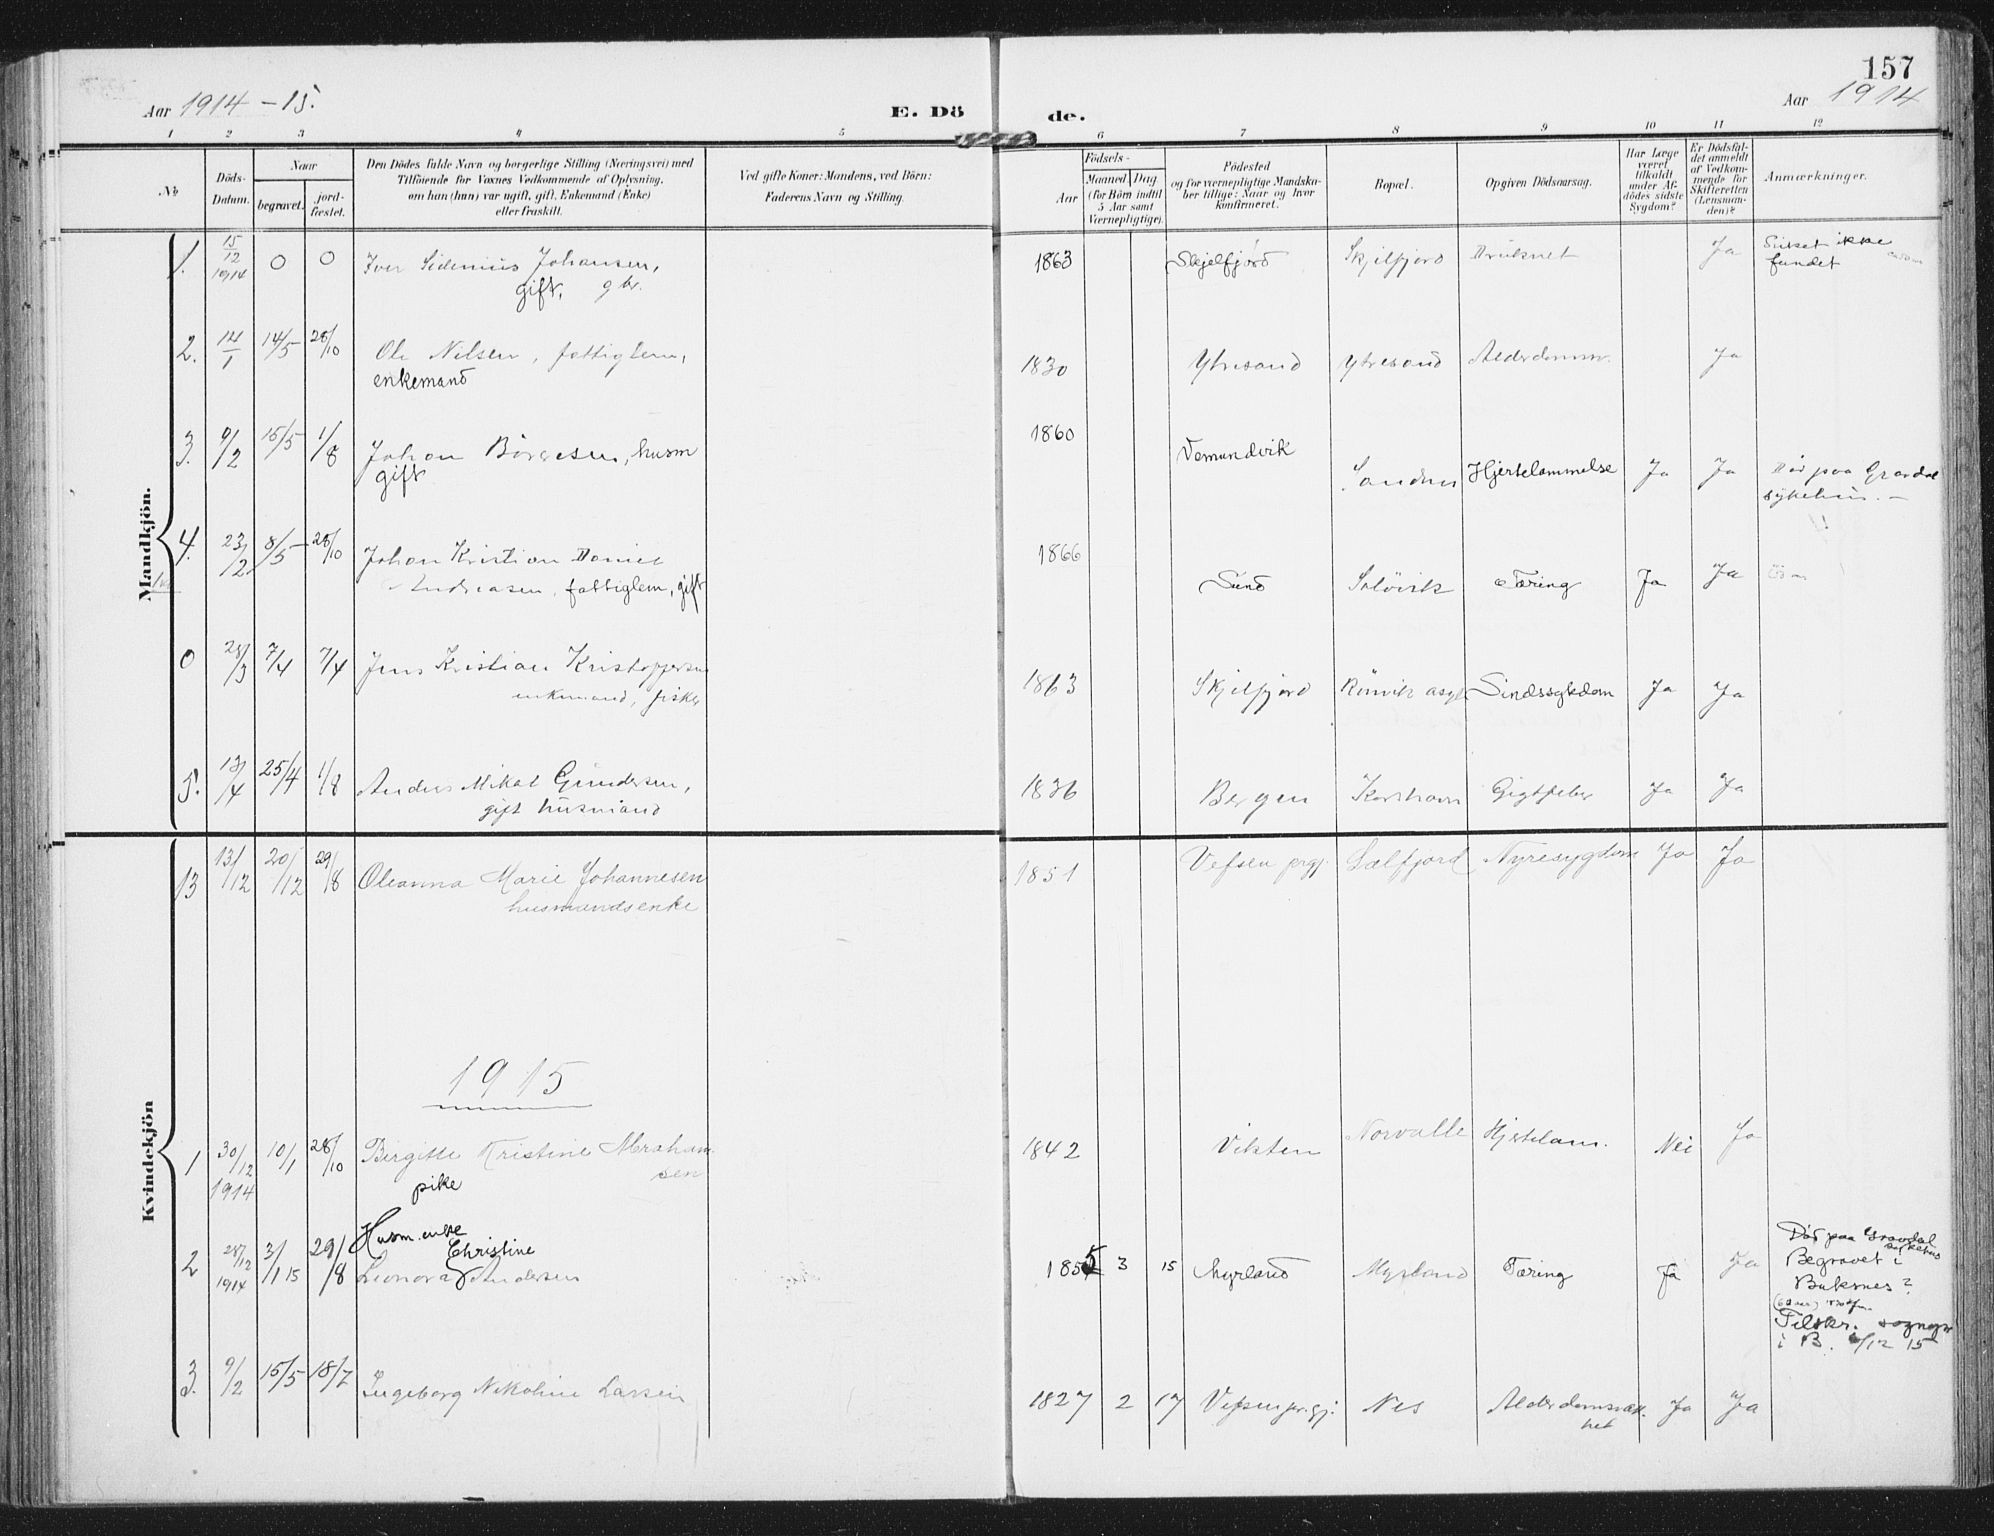 157
Aar 1914-15.
E. Dö
de.
Aar 1914
1 2 3 4 5 6 7 8 9 10 11 12
No
Döds-
Datum.
Naar
begravet.
jord-
fæstet.
Den Dödes fulde Navn og borgerlige Stilling (Næringsvei) med
Tilföiende for Voxnes Vedkommende af Oplysning,
om han (hun) var ugift, gift, Enkemand (Enke)
eller fraskilt.
Ved gifte Koner: Mandens, ved Börn:
Faderens Navn og Stilling.
Födsels-
Aar
Maaned. Dag
(for Börn indtil
5 Aar samt
Værnepligtige).
Födested
og for værnepligtige Mandska-
ber tillige: Naar og hvor
konfirmeret.
Bopæl.
Opgiven Dödsaarsag.
Har Læge
været
tilkaldt
under Af-
dödes sidste
Sygdom?
Er Dödsfal-
det anmeldt
af Vedkom-
mende for
Skifteretten
(Lensman-
den)?
Anmærkninger.
Mandkjön.
1. 15/12 1914 0 0 Iver Sidenius Johansen, 1863 Skjelfjord Skjelfjord Druknet Ja
gift, gbr.
ikke
fundet
2. 14/1 14/5 28/10 Ole Nilsen, fattiglem, 1830 Ytresand Ytresand Alderdomsv. Ja
enkemand
3. 9/2 15/5 1/8 Johan Börresen, husm 1860 Vemundvik Sanden Hjertelammelse Ja Ja Död paa Gravdal
gift
sykehus.-
4. 23/2 8/5 28/10 Johan Kristian Daniel 1866 Sund Solövik Tæring Ja Ja
Andreasen, fattiglem, gift
0 28/3 7/4 7/4 Jens Kristian Kristoffersen 1863 Skjelfjord Rönvik asyl Sindssykdom Ja Ja
enkemand, fisker
5. 13/4 25/4 1/8 Anders Mikal Gundersen, 1836 Bergen Korshavn Gigtfeber Ja Ja
gift husmand
Kvindekjön
13 13/12 20/12 29/8 Oleanna Marie Johannesen 1851 Vefsen prgj. Selfjord Nyresygdom Ja Ja
husmandsenke
1915
1 30/12 1914 10/1 28/10 Birgitte Kristine Abraham- 1842 Vikten Norvalle Hjertelam. Nei Ja
sen
pike
Husm.enke
Christine
2 28/12 1914 3/1 15 29/8 Leonora Andersen 1855 3 15 Myrland Myrland Tæring Ja Ja
Död paa Gravdal
sykehus
Begravet i
Buksnes?
Tilskr. sognepr
i B. 6/12 15
3. 9/2 15/5 18/7 Ingeborg Nikoline Larsen 1827 2 17 Vefsen pr.gj. Nes Alderdomsvak- Ja Ja
het